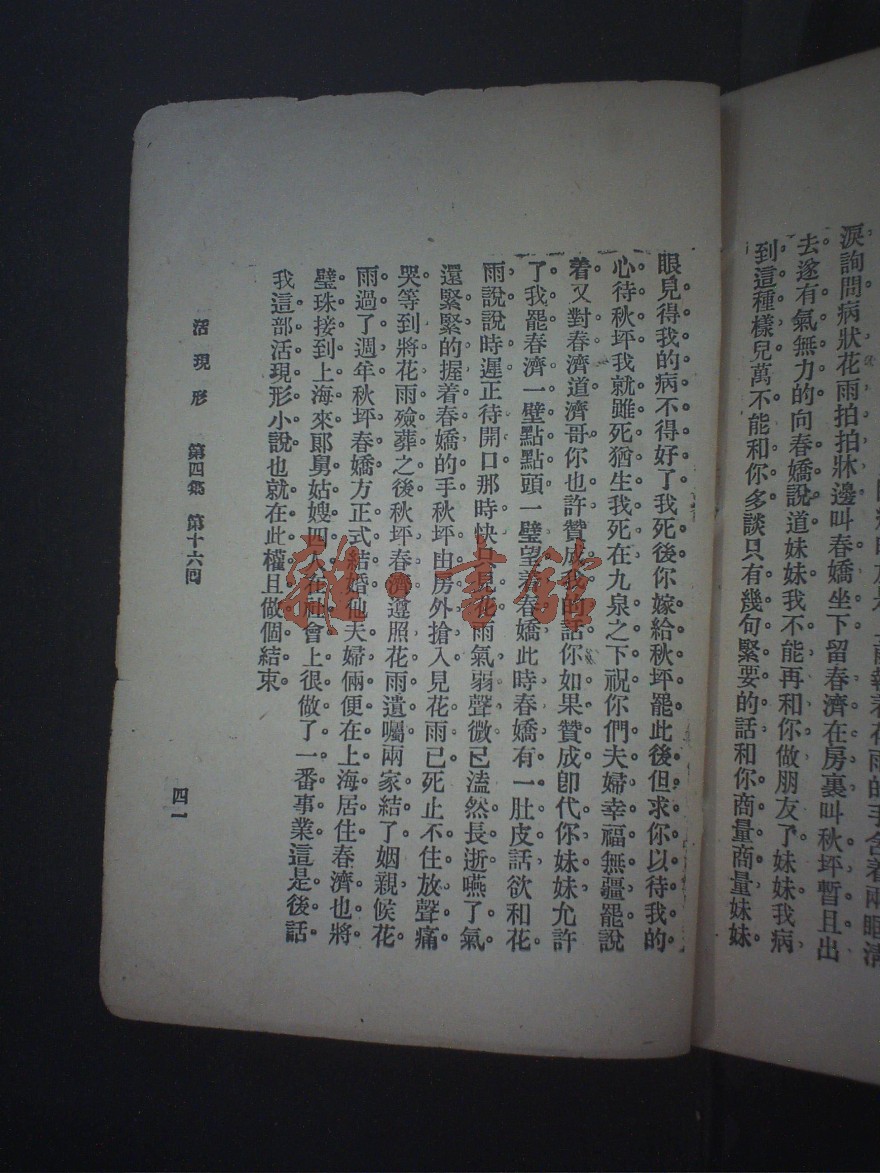 淚詢問病狀花雨拍拍牀邊叫春嬌坐下留春濟在房裏叫秋坪暫且出
去遂有氣無力的向春嬌說道妹妹我不能再和你做朋友了妹妹我病
到這種樣兒萬不能和你多談只有幾句緊要的話和你商量商量妹妹
眼見得我的病不得好了我死後你嫁給秋坪罷此後但求你以待我的
心待秋坪我就雖死猶生我死在九泉之下祝你們夫婦幸福無疆罷說
着又對春濟道濟哥你也許贊成我的話你如果贊成卽代你妹妹允許
了我罷春濟一壁點點頭一壁望着春嬌此時春嬌有一肚皮話欲和花
雨說說時遲正待開口那時快只見花雨氣弱聲微已溘然長逝嚥了氣
還緊緊的握着春嬌的手秋坪由房外搶入見花雨已死止不住放聲痛
哭等到將花雨殮葬之後秋坪春濟遵照花雨遺囑兩家結了姻親候花
雨過了週年秋坪春嬌方正式結婚他夫婦倆便在上海居住春濟也將
璧珠接到上海來郎舅姑嫂四人在社會上很做了一番事業這是後話
我這部活現形小說也就在此權且做個結束
活現形 第四集 第十六回 四一
雜·書館